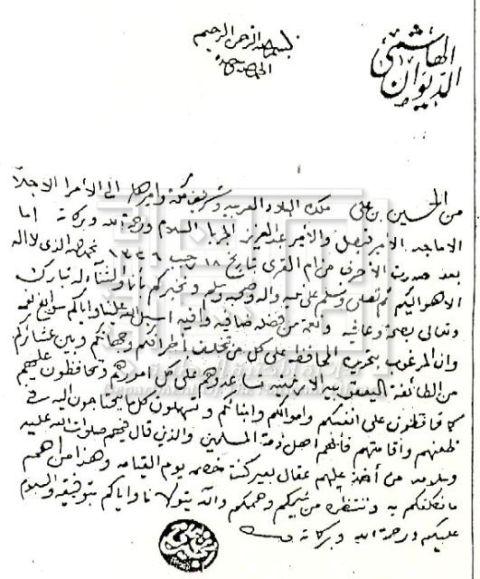 الديوان الهاشمي
بسم الله الرحمن الرحيم
الحمد لله وحده
من الحسين بن علي ملك البلاد العربية وشريف مكة واميرها الى الأمرا الاجلا
الاماجد الأمير فيصل والأمير عبد العزيز الجربا السلام ورحمة الله وبركاته اما
بعد صدرت الأحرف من ام القرى بتاريخ ١٨ رجب ١٣٣٦ نحمد الله الذى لا اله
الا هو اليكم ونصلي ونسلم على نبيه وآله وصحبه وسلم ونخبركم بأنا والثناء له تبارك
وتعالى بصحة وعافيه ونعم من فضله ضافيه وافيه اسبل الله علينا واياكم سوابغ نعمه
وان المرغوب بتحريره المحافظة على كل من تخلف بأطرافكم وجهاتكم وبين عشائركم
من الطائفة اليعقوبيه الارمنيه تساعدوهم على كل امورهم وتحافظون عليهم
كما تحافظون على انفسكم واموالكم وابنائكم وتسهلون كل ما يحتاجون اليه فى
ظعنهم واقامتهم فانهم اهل ذمة المسلمين والذي قال فيهم صلوات الله عليه
وسلامه من أخذ عليهم عقال بعير كنت خصمه يوم القيامه وهذا من اهم
ما نكلفكم به وننتظره من شيمكم وهممكم والله يتولانا واياكم بتوفيقه والسلام
عليكم ورحمة الله وبركاته